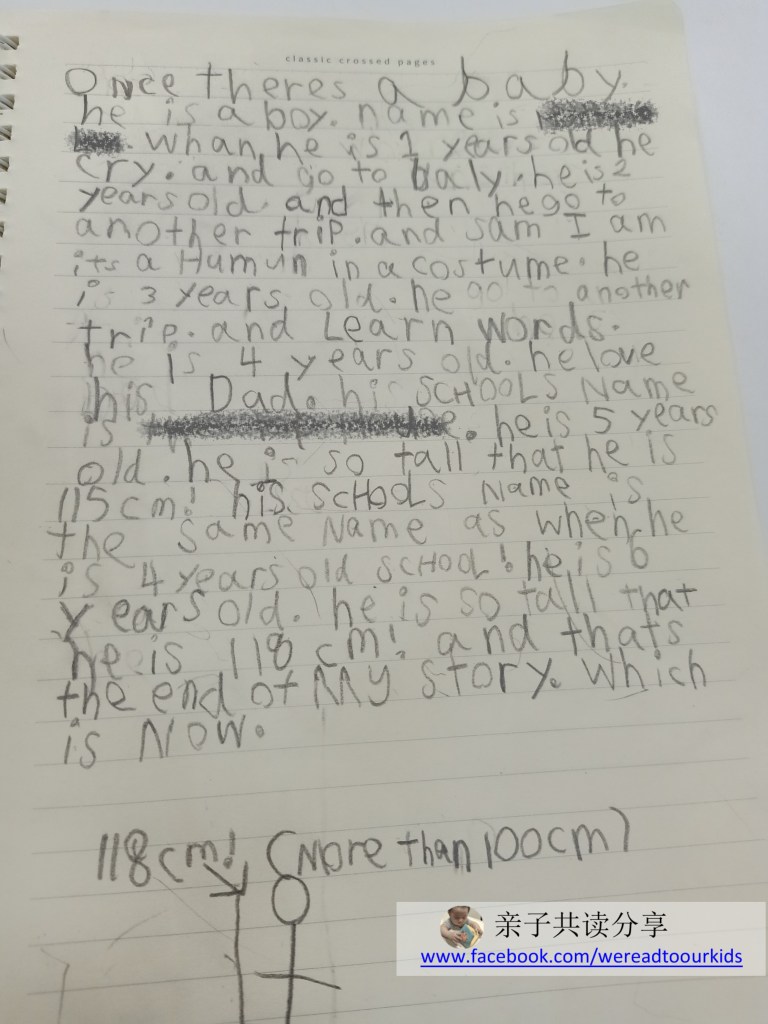 classic crossed pages
Once theres a baby.
he is a boy. name is
. whan he is 1 years old he
cry. and go to baly. he is 2
years old. and then he go to
another trip. and sam I am
its a Humun in a costume. he
is 3 years old. he go to another
trip. and Learn words.
he is 4 years old. he love
his Dad. his SCHOOLS Name
is . he is 5 years
old. he is so tall that he is
115cm! his SCHOOLS Name is
the same Name as when he
is 4 years old SCHOOL! he is 6
years old. he is so tall that
he is 118 cm! and thats
the end of My story. Which
is Now.
118cm! (More than 100cm)
亲子共读分享
www.facebook.com/wereadtoourkids